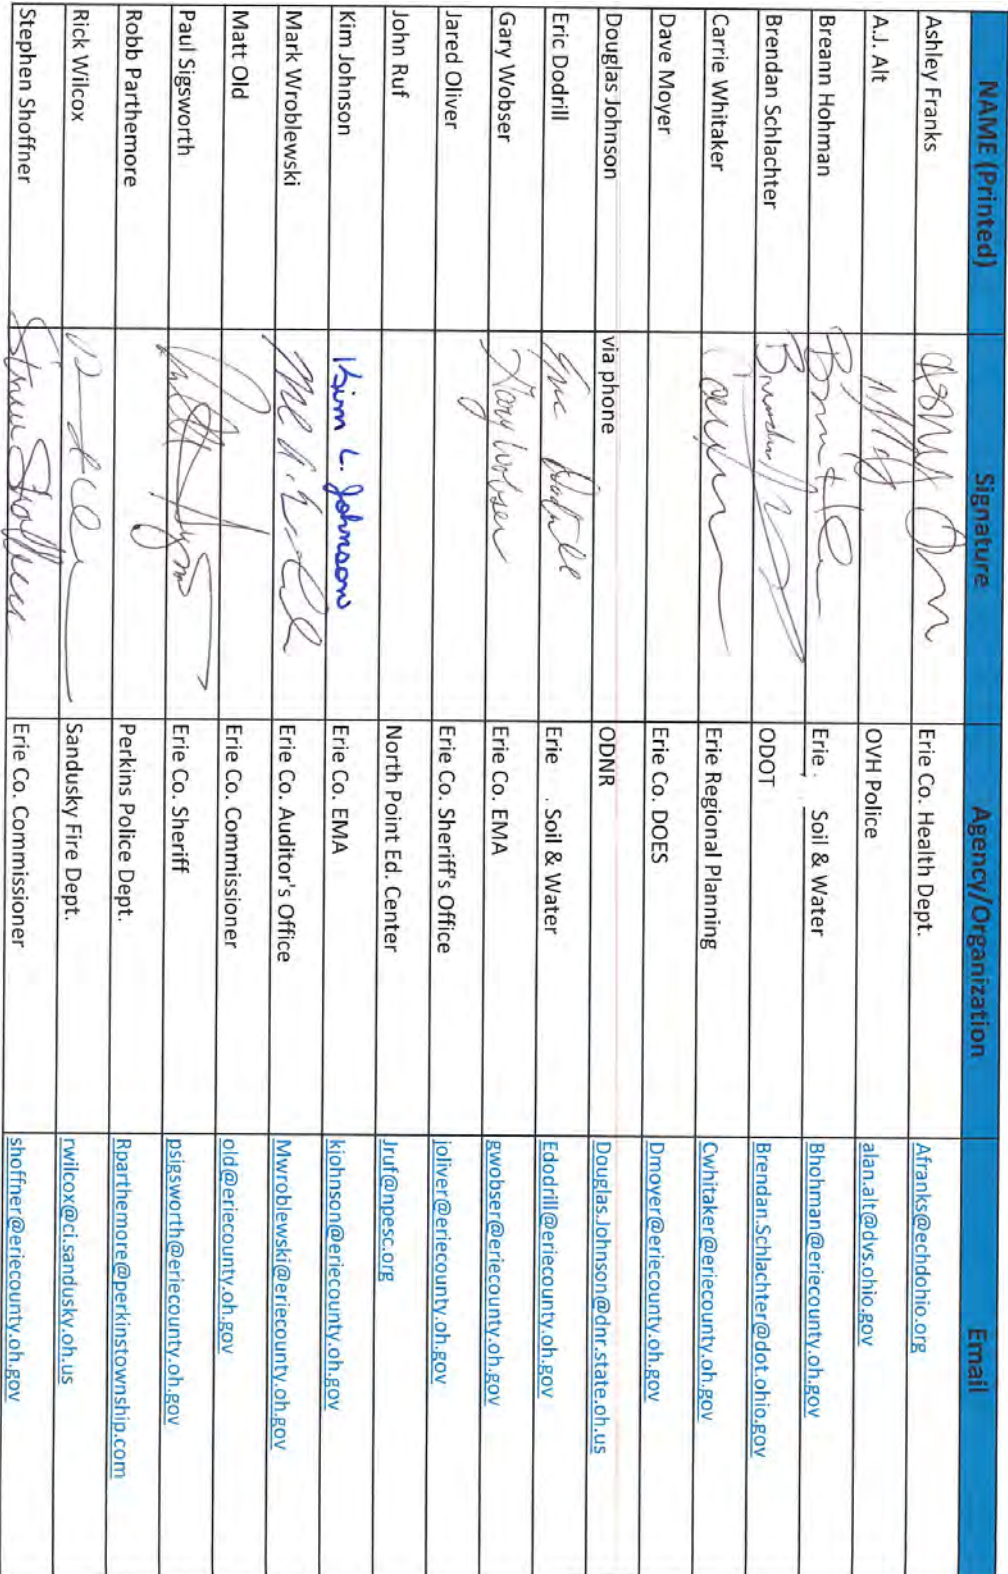 NAME (Printed) Signature Agency/Organization Email
Ashley Franks Erie Co. Health Dept. Afranks@echdohio.org
A.J. Alt OVH Police alan.alt@dvs.ohio.gov
Breann Hohman Erie . Soil & Water Bhohman@eriecounty.oh.gov
Brendan Schlachter ODOT Brendan.Schlachter@dot.ohio.gov
Carrie Whitaker Erie Regional Planning Cwhitaker@eriecounty.oh.gov
Dave Moyer Erie Co. DOES Dmoyer@eriecounty.oh.gov
Douglas Johnson via phone ODNR Douglas.Johnson@dnr.state.oh.us
Eric Dodrill Eric Dodrill Erie . Soil & Water Edodrill@eriecounty.oh.gov
Gary Wobser Gary Wobser Erie Co. EMA gwobser@eriecounty.oh.gov
Jared Oliver Erie Co. Sheriff's Office joliver@eriecounty.oh.gov
John Ruf North Point Ed. Center Jruf@npesc.org
Kim Johnson Kim L. Johnson Erie Co. EMA kjohnson@eriecounty.oh.gov
Mark Wroblewski Erie Co. Auditor's Office Mwroblewski@eriecounty.oh.gov
Matt Old Erie Co. Commissioner old@eriecounty.oh.gov
Paul Sigsworth Erie Co. Sheriff psigsworth@eriecounty.oh.gov
Robb Parthemore Perkins Police Dept. Rparthemore@perkinstownship.com
Rick Wilcox Sandusky Fire Dept. rwilcox@ci.sandusky.oh.us
Stephen Shoffner Erie Co. Commissioner shoffner@eriecounty.oh.gov